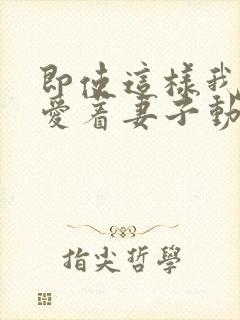 即使這樣我
愛着妻子動
指尖哲學